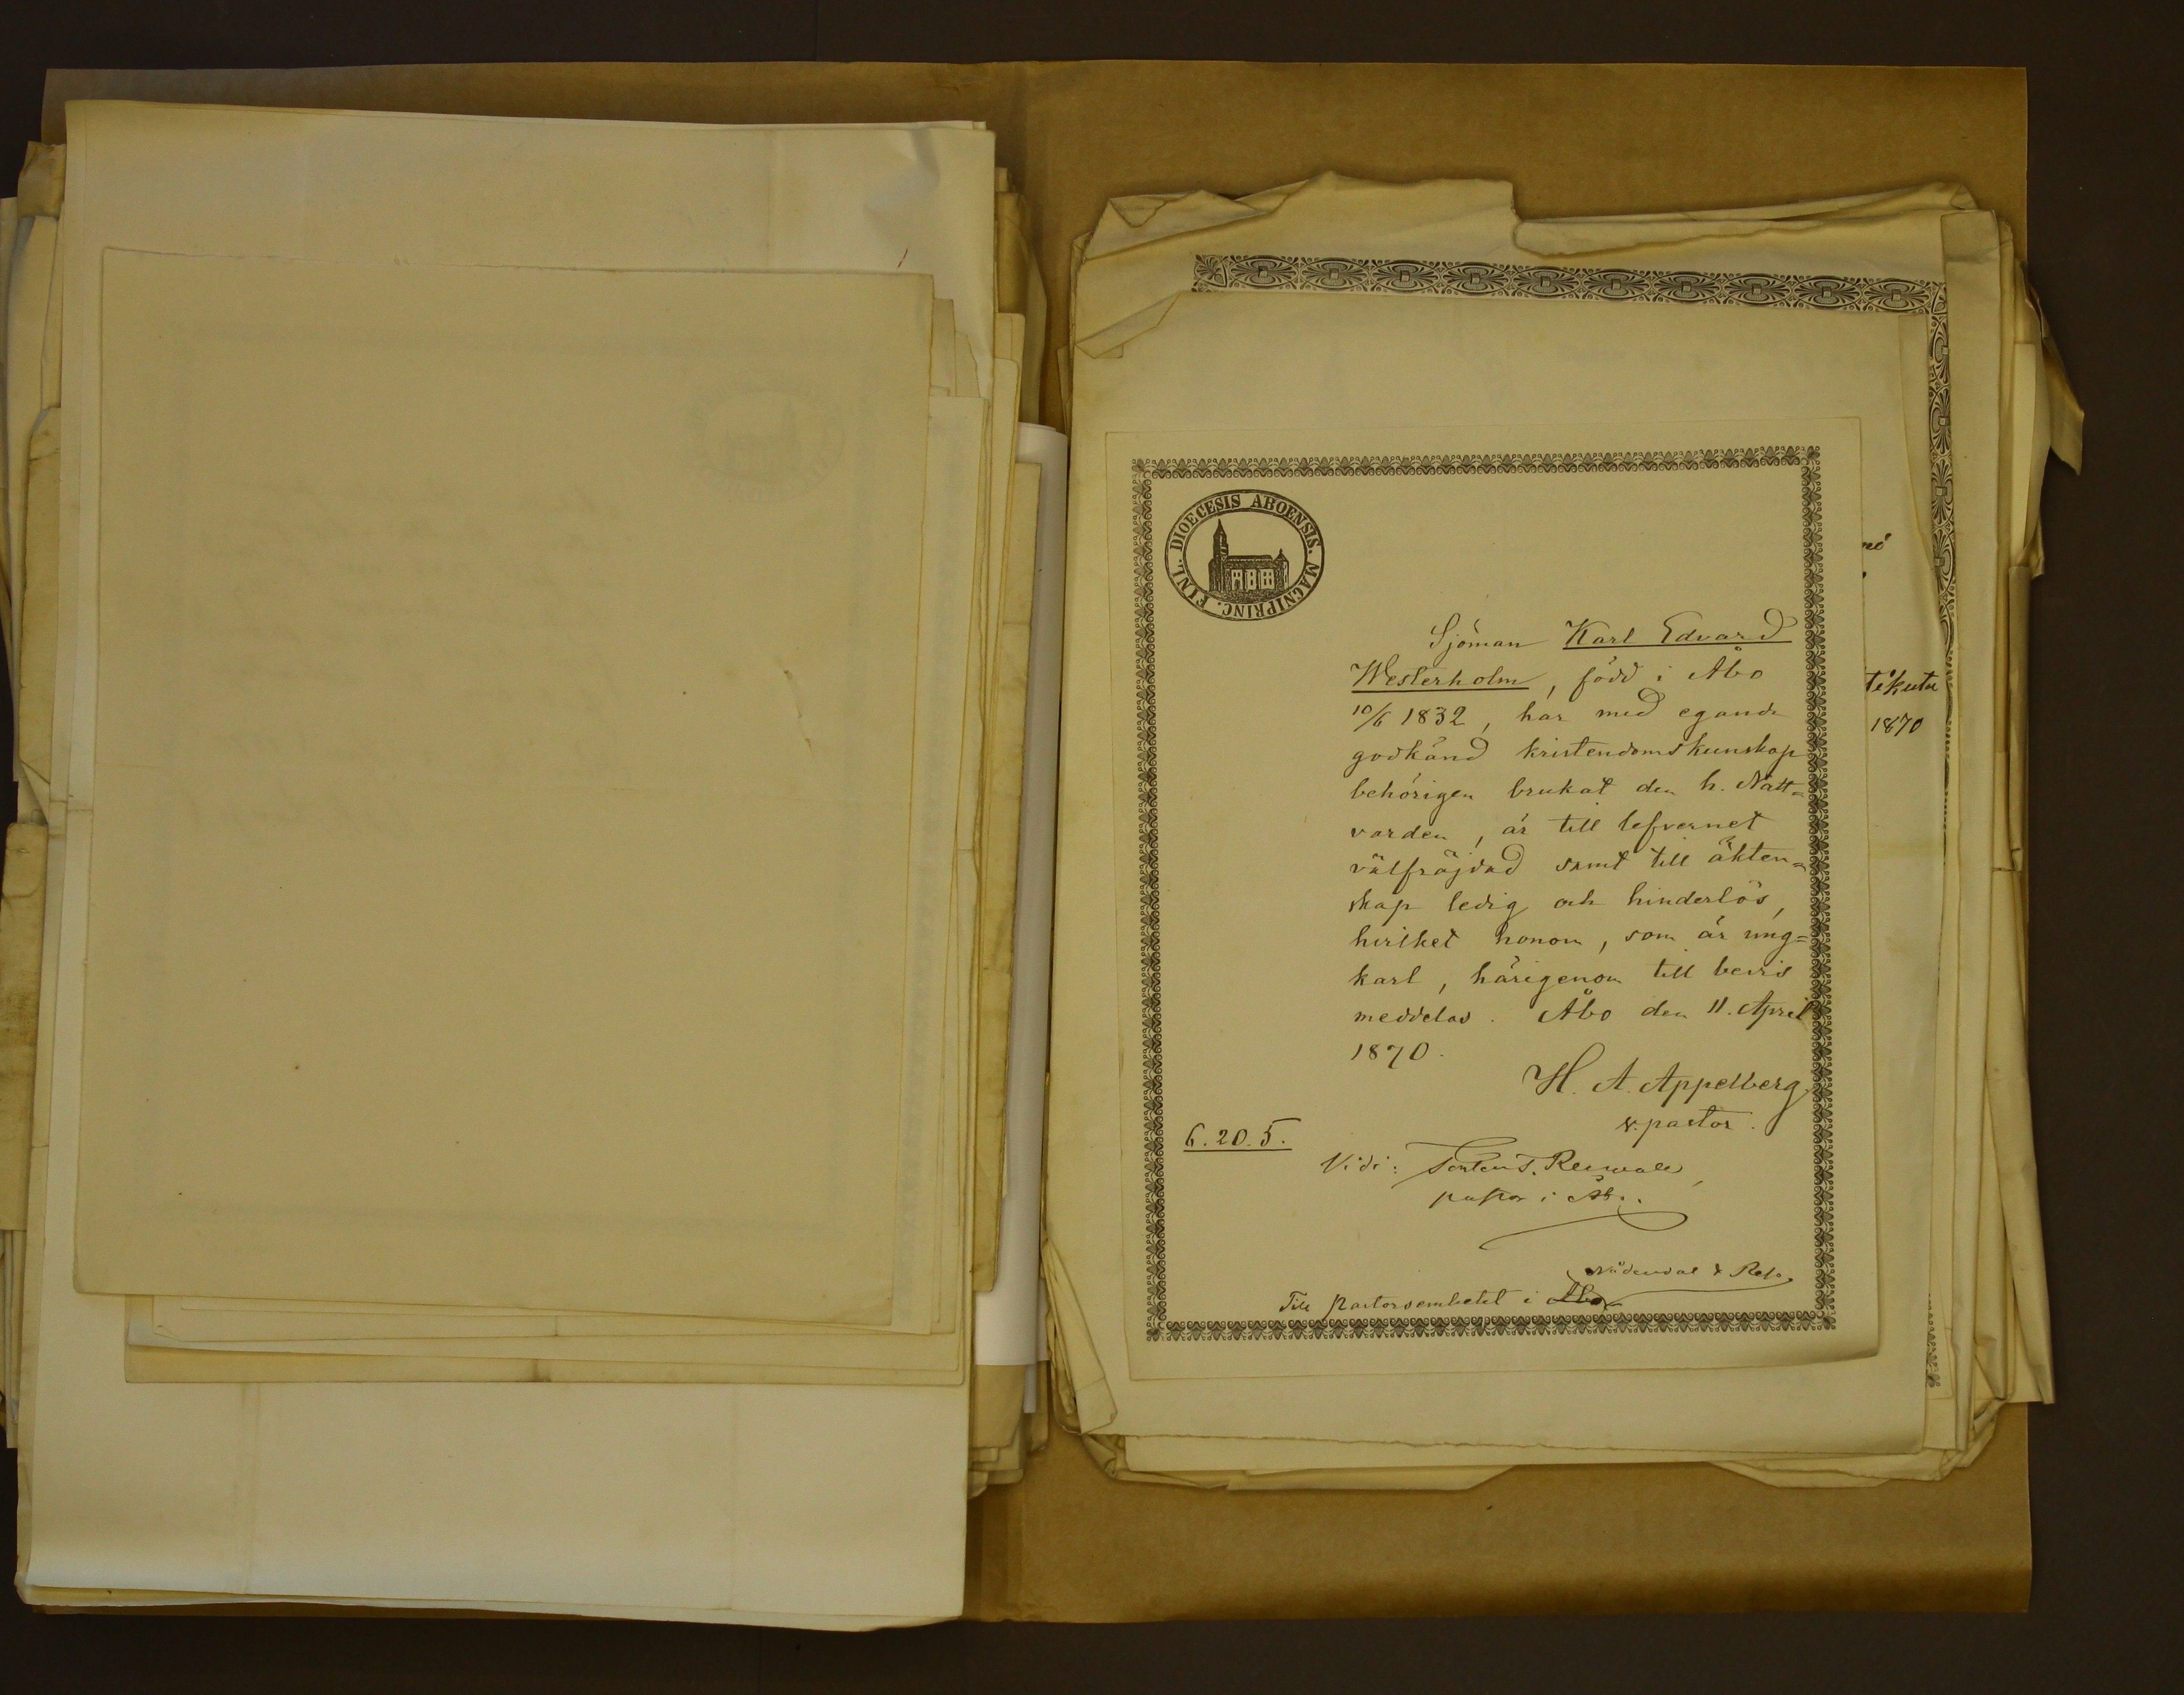 DIOECESIS ABOENSIS. MAGNIPRINC. FINL.
Sjöman Karl Edvard
Westerholm, född i Åbo
10/6 1832, har med egande
godkänd kristendomskunskap
behörigen brukat den h. Natt=
varden, är till lefvernet
välfräjdad samt till äkten=
skap ledig och hinderlös,
hvilket honom, som är ung=
karl, härigenom till bevis
meddelas. Åbo den 11. April
1870.
H. A. Appelberg
v. pastor.
6.20.5.
Vidi:
pastor i Åbo.
Nådendal & Reso
Till Pastorsembetet i Åbo
1870